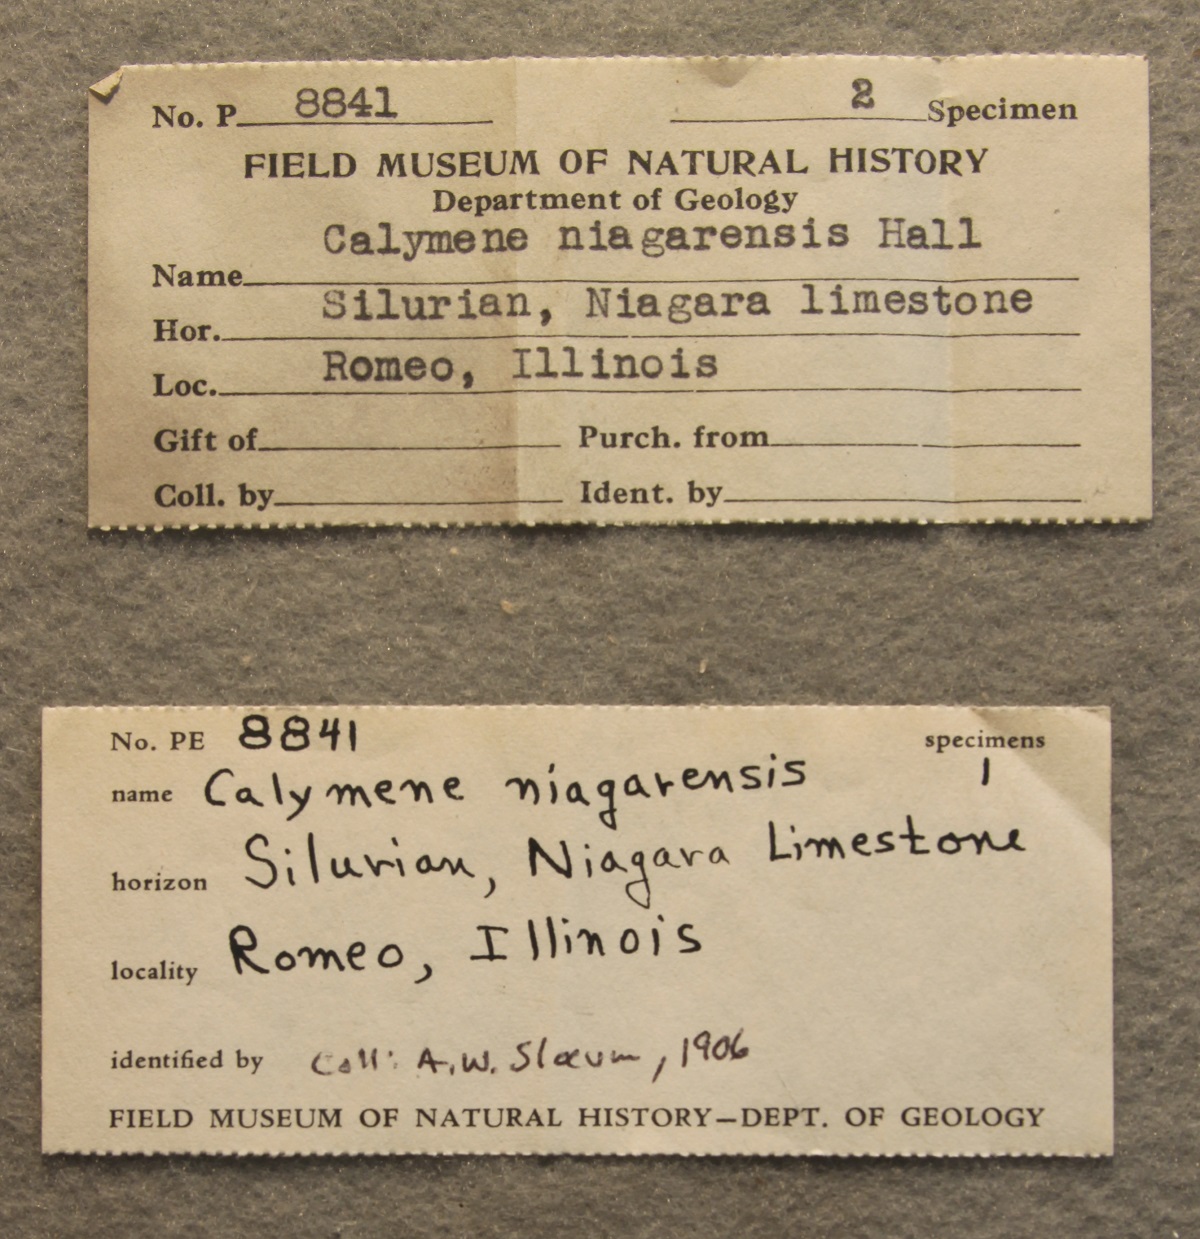 No. P 8841 2 Specimen
FIELD MUSEUM OF NATURAL HISTORY
Department of Geology
Name Calymene niagarensis Hall
Hor. Silurian, Niagara limestone
Loc. Romeo, Illinois
Gift of Purch. from
Coll. by Ident. by
No. PE 8841 specimens
name Calymene niagarensis 1
horizon Silurian, Niagara Limestone
locality Romeo, Illinois
identified by Coll: A.W. Slocum, 1906
FIELD MUSEUM OF NATURAL HISTORY—DEPT. OF GEOLOGY